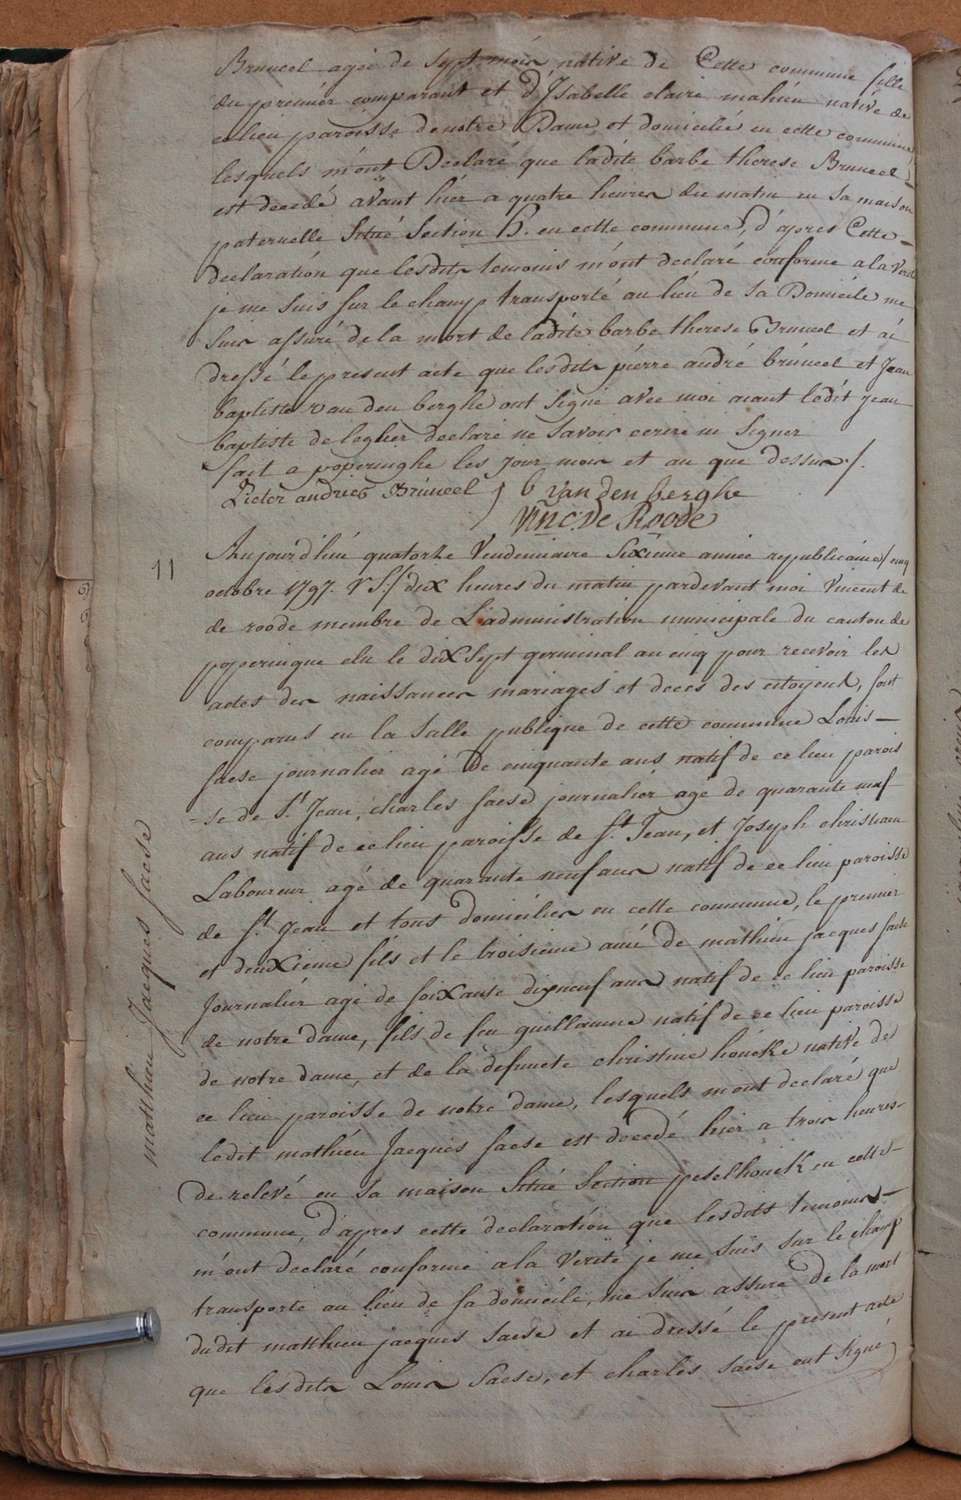 Bruneel agée de sept mois native de Cette commune fille
du premier comparant et d'Isabelle claire mahieu native de
ce lieu paroisse de notre Dame et domiciliée en cette commune
lesquels m'ont Declaré que ladite barbe therese Bruneel
est decedé avant hier a quatre heures du matin en sa maison
paternelle Situé Section h. en cette commune, d'apres Cette
declaration que lesdits temoins m'ont declaré conforme a la verité
je me suis sur le champ transporté au lieu de sa Domicile me
suis assuré de la mort de ladite barbe therese Bruneel et ai
dressé le present acte que lesdits pierre andré brúneel et Jean
baptiste van den berghe ont signé avec moi aiant ledit jean
baptiste de legher declaré ne savoir ecrire ni signer
fait a poperinghe les jour mois et an que dessus ./.
Pieter andries Brúneel J b van den berghe
Vinc. De Roode
11
Aujourd'hui quatorze Vendemiaire Sixieme année republicaine / cinq
octobre 1797. V S./ dix heures du matin pardevant moi Vincent de
de roode membre de L'administration municipale du canton de
poperingue elu le dix sept germinal an cinq pour recevoir les
actes des naissances mariages et deces des citoyens, sont
comparus en la salle publique de cette commune Louis
saese journalier agé de cinquante ans natif de ce lieu parois
-se de St Jean, charles saese journalier agé de quarante neuf
ans natif de ce lieu paroisse de St Jean, et Joseph christiaen
Laboureur agé de quarante neuf ans natif de ce lieu paroisse
de St Jean et tous domiciliés en cette commune, le premier
et deuxieme fils et le troisieme ami de mathieu jacques saese
Journalier agé de soixante dix neuf ans natif de ce lieu paroisse
de notre dame, fils de feu guillaume natif de ce lieu paroisse
de notre dame, et de la defuncte christine houcke native de
ce lieu paroisse de notre dame, lesquels m'ont declaré que
ledit mathieu Jacques saese est decedé hier a trois heures
de relevé en sa maison Situé Section peselhouck en cette
commune, d'apres cette declaration que lesdits temoins
m'ont declaré conforme a la verité je me suis sur le champ
transporté au lieu de sa domicile, me suis assuré de la mort
dudit matthieu jacques saese et ai dressé le present acte
que lesdits Louis saese, et charles saese ont signé
matthieu Jacques saese